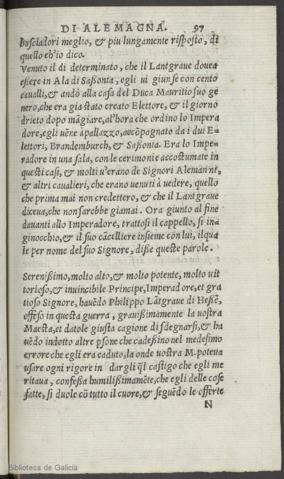 DI ALEMAGNA. 57
basciadori meglio, & piu lungamente risposto, di
quello ch'io dico.
Venuto il di determinato, che il Lantgraue douea
essere in Ala di Sassonia, egli ui giunse con cento
caualli, & andò alla casa del Duca Mauritio suo ge
nero, che era gia stato creato Elettore, & il giorno
drieto dopo māgiare, al'hora che ordino lo Impera
dore, egli uēne apallazzo, accōpagnato da i dui E=
lettori, Brandemburch, & Sassonia. Era lo Impe-
radore in una sala, con le cerimonie accostumate in
questi casi, & molti u'erano de Signori Alemanni,
& altri cauallieri, che erano uenuti à uedere, quello
che prima mai non credettero, & che il Lantgraue
diceua, che non sarebbe giamai. Ora giunto al fine
dauanti allo Imperadore, trattosi il cappello, si in=
ginocchio, & il suo cācelliere insieme con lui, ilqua
le per nome del suo Signore, disse queste parole.
Serenissimo, molto alto, & molto potente, molto uit
torioso, & inuincibile Principe, Imperadore, et gra
tioso Signore, hauēdo Philippo Lātgraue di Hessē,
offeso in questa guerra, grauissimamente la uostra
Maesta, et datole giusta cagione di sdegnarsi, & ha
uēdo indotto altre psone che cadessino nel medesimo
errore che egli era caduto, la onde uostra M. poteua
usare ogni rigore in dargli ql castigo che egli me
ritaua, confessa humilissimamēte, che egli delle cose
fatte, si duole cō tutto il cuore, & seguēdo le offerte
N
Biblioteca de Galicia